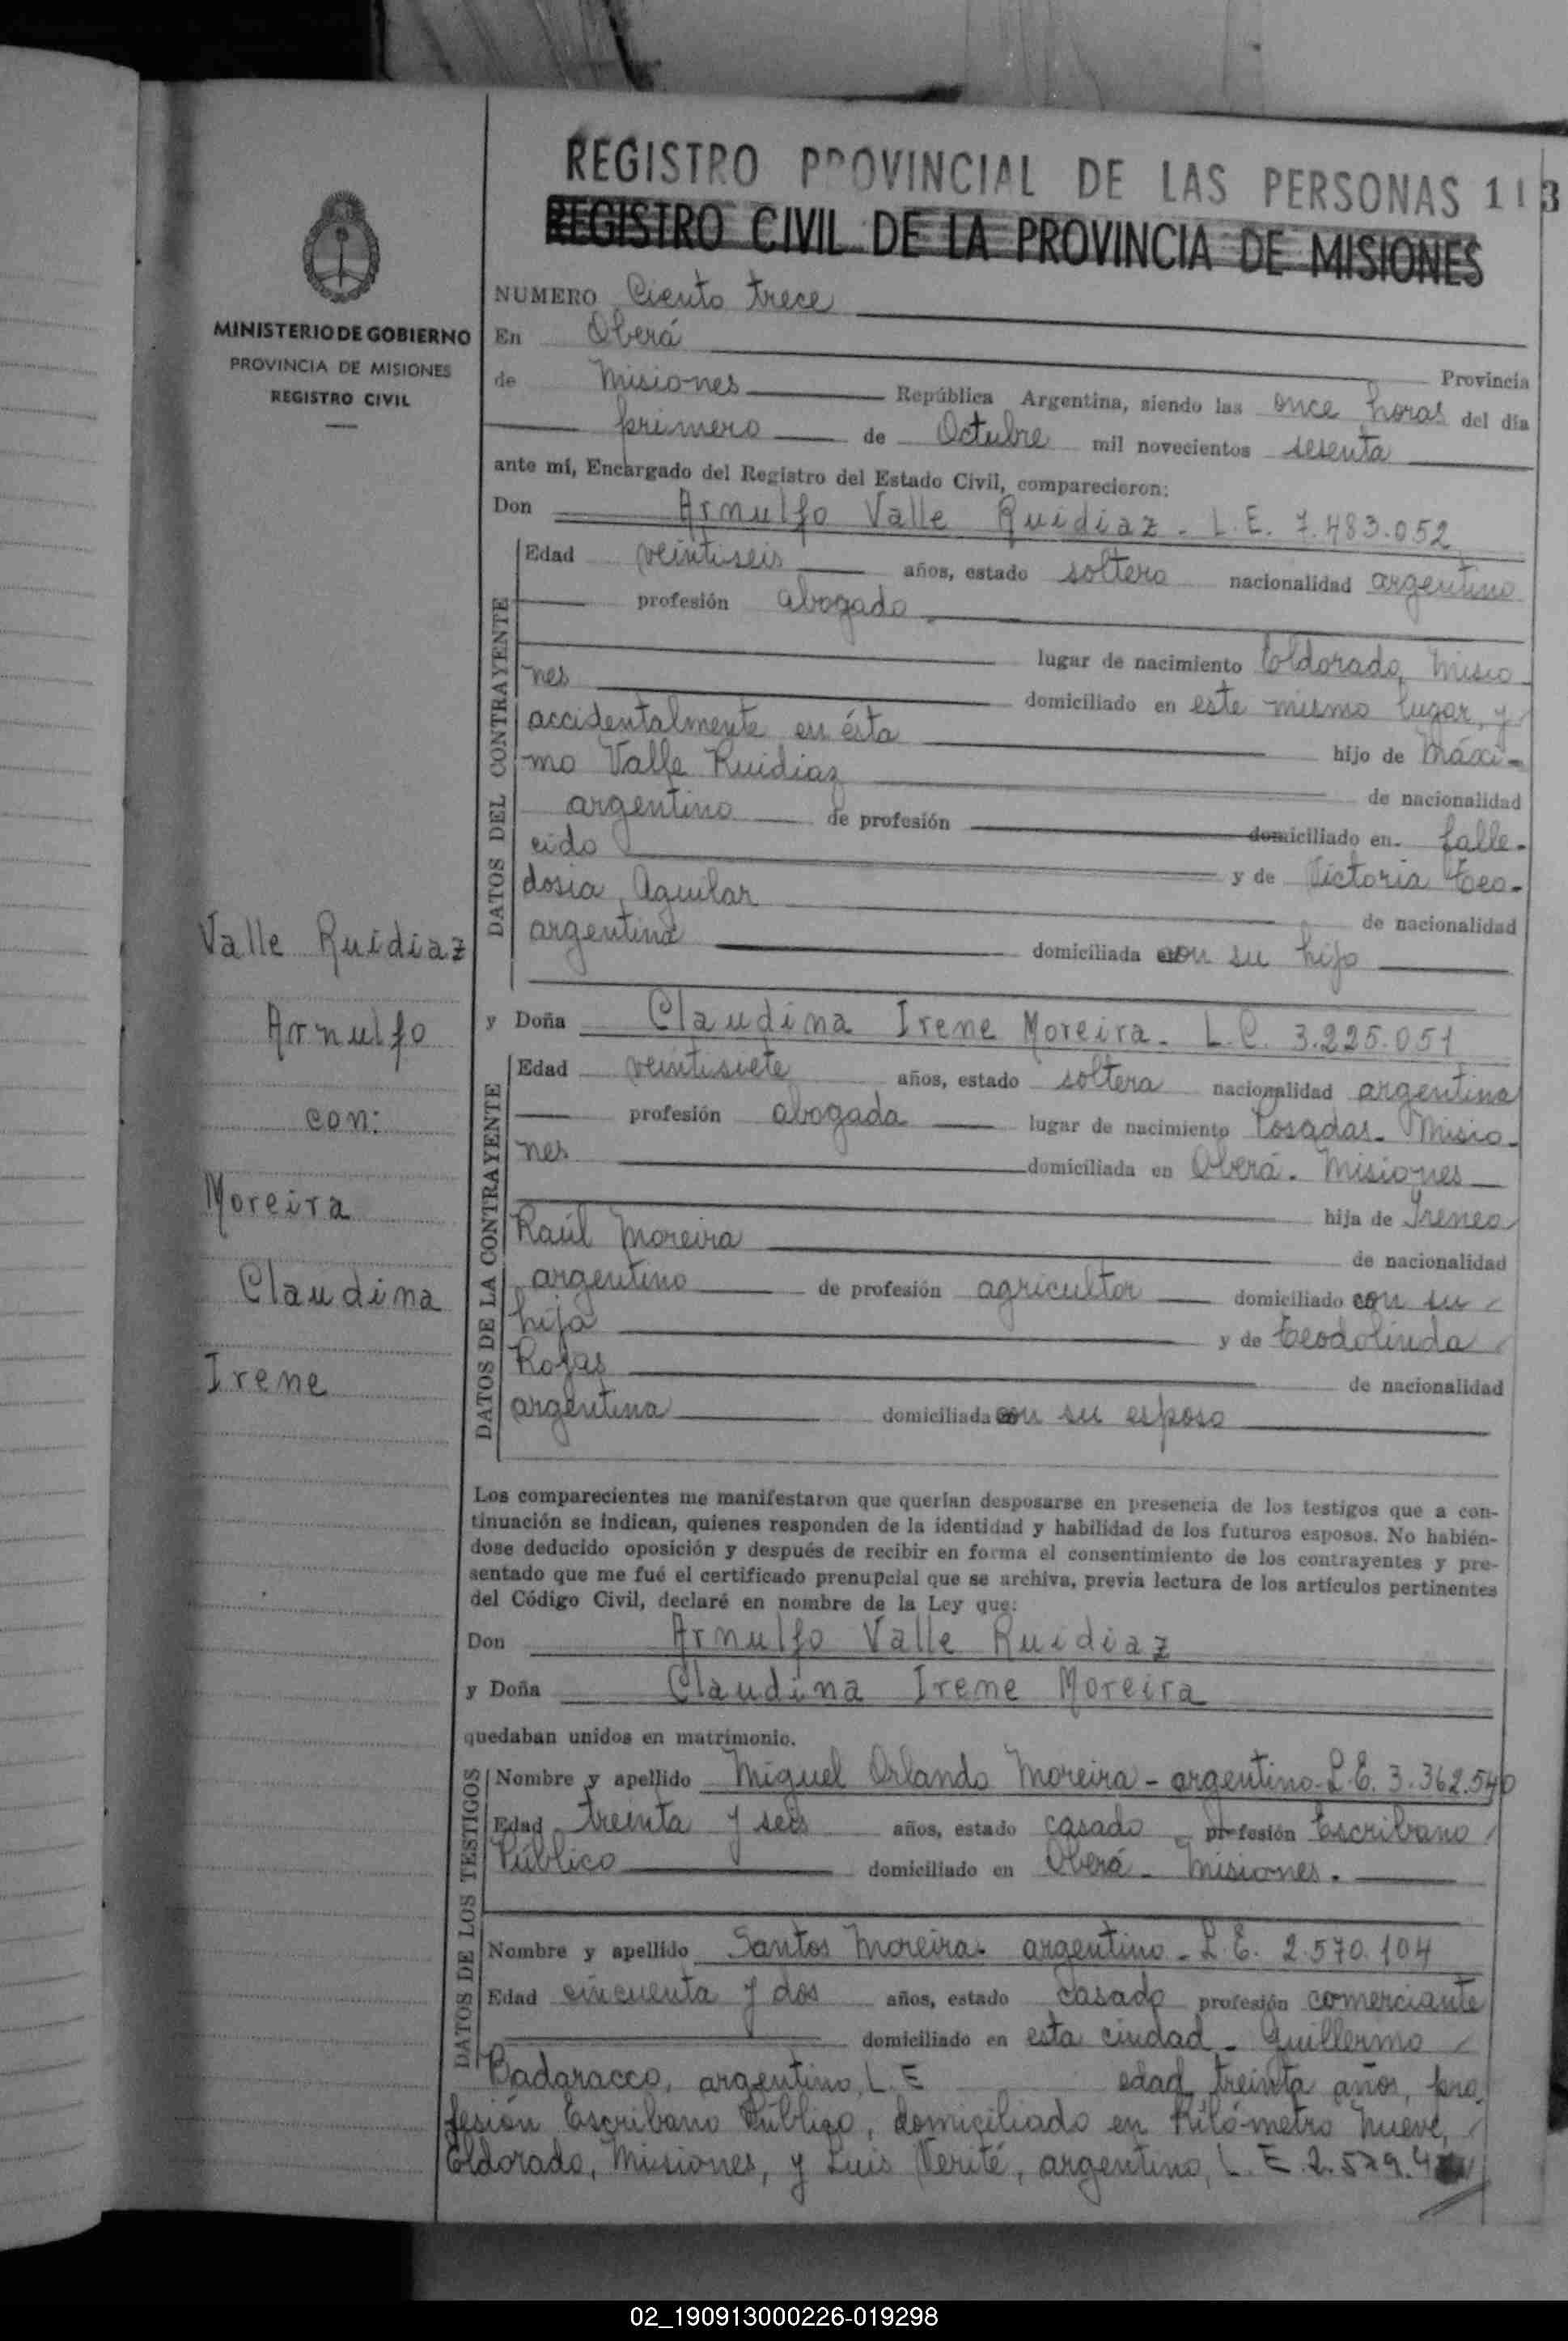 REGISTRO PROVINCIAL DE LAS PERSONAS 113
REGISTRO CIVIL DE LA PROVINCIA DE MISIONES
MINISTERIO DE GOBIERNO
PROVINCIA DE MISIONES
REGISTRO CIVIL
Valle Ruidiaz
Arnulfo
con:
Moreira
Claudina
Irene
NUMERO Ciento trece
En Oberá
Provincia
de Misiones República Argentina, siendo las once horas del día
primero de Octubre mil novecientos sesenta
ante mí, Encargado del Registro del Estado Civil, comparecieron:
Don Arnulfo Valle Ruidiaz - L.E. 7.483.052
DATOS DEL CONTRAYENTE
Edad veintiseis años, estado soltero nacionalidad argentino
profesión abogado
lugar de nacimiento Eldorado, Misio-
nes domiciliado en este mismo lugar, y
accidentalmente en ésta hijo de Máxi-
mo Valle Ruidiaz de nacionalidad
argentino de profesión domiciliado en falle-
cido y de Victoria Teo-
dosia Aguilar de nacionalidad
argentina domiciliada con su hijo
y Doña Claudina Irene Moreira - L.C. 3.225.051
DATOS DE LA CONTRAYENTE
Edad veintisiete años, estado soltera nacionalidad argentina
profesión abogada lugar de nacimiento Posadas - Misio-
nes domiciliada en Oberá - Misiones
hija de Ireneo
Raúl Moreira de nacionalidad
argentino de profesión agricultor domiciliado con su
hija y de Teodolinda
Rojas de nacionalidad
argentina domiciliada con su esposo
Los comparecientes me manifestaron que querían desposarse en presencia de los testigos que a con-
tinuación se indican, quienes responden de la identidad y habilidad de los futuros esposos. No habién-
dose deducido oposición y después de recibir en forma el consentimiento de los contrayentes y pre-
sentado que me fué el certificado prenupcial que se archiva, previa lectura de los artículos pertinentes
del Código Civil, declaré en nombre de la Ley que:
Don Arnulfo Valle Ruidiaz
y Doña Claudina Irene Moreira
quedaban unidos en matrimonio.
DATOS DE LOS TESTIGOS
Nombre y apellido Miguel Orlando Moreira - argentino - L.E. 3.362.540
Edad treinta y seis años, estado casado profesión Escribano
Público domiciliado en Oberá - Misiones.
Nombre y apellido Santos Moreira - argentino - L.E. 2.570.104
Edad cincuenta y dos años, estado casado profesión comerciante
domiciliado en esta ciudad - Guillermo
Badaracco, argentino, L.E edad treinta años, pro-
fesión Escribano Público, domiciliado en Kilómetro nueve,
Eldorado, Misiones, y Luis Verité, argentino, L.E.
02_190913000226-019298